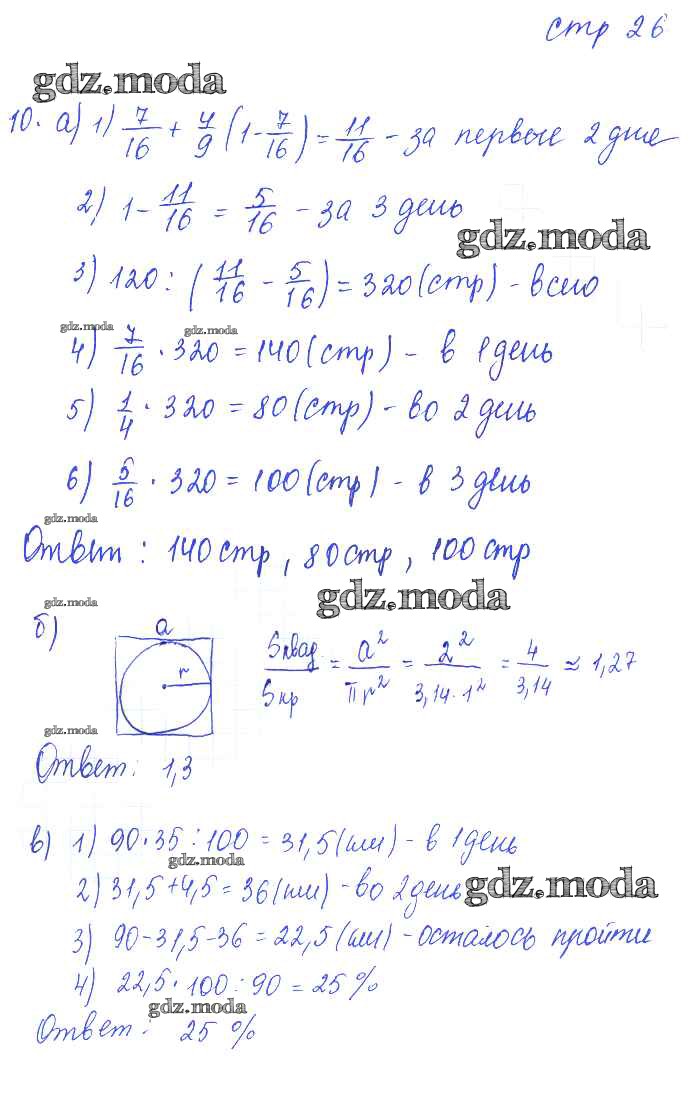 стр 26
gdz.moda
10. а) 1) 7/16 + 4/9 (1 - 7/16) = 11/16 - за первые 2 дня
2) 1 - 11/16 = 5/16 - за 3 день
gdz.moda
3) 120 : (11/16 - 5/16) = 320 (стр) - всего
gdz.moda gdz.moda
4) 7/16 · 320 = 140 (стр) - в 1 день
5) 1/4 · 320 = 80 (стр) - во 2 день
6) 5/16 · 320 = 100 (стр) - в 3 день
gdz.moda
Ответ: 140 стр, 80 стр, 100 стр
gdz.moda gdz.moda
б) a r Sквад/Sкр = a²/πr² = 2²/3,14·1² = 4/3,14 ≈ 1,27
gdz.moda
Ответ: 1,3
в) 1) 90·35:100 = 31,5 (км) - в 1 день
gdz.moda
2) 31,5+4,5 = 36 (км) - во 2 день
gdz.moda
3) 90-31,5-36 = 22,5 (км) - осталось пройти
4) 22,5·100:90 = 25 %
gdz.moda
Ответ: 25 %